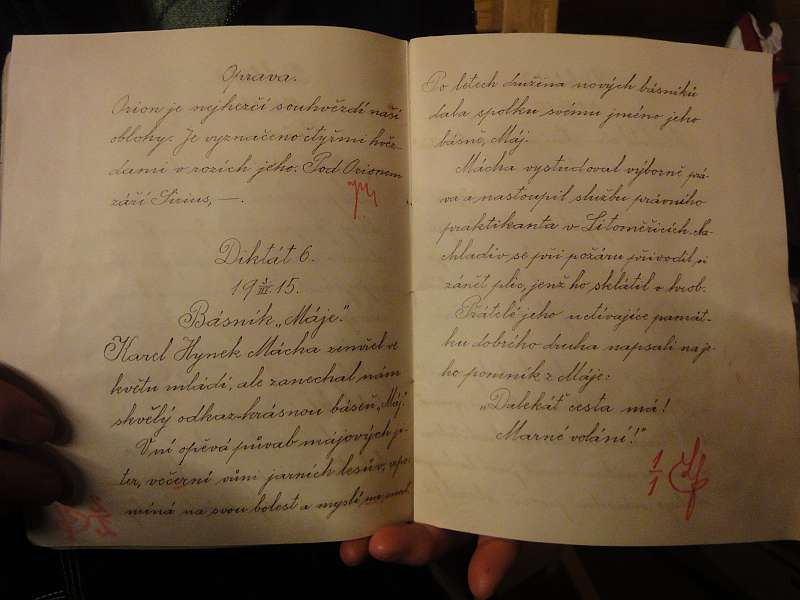 Oprava.
Orion je nejhezčí souhvězdí naší
oblohy. Je vyznačeno čtyřmi hvěz-
dami v rozích jeho. Pod Orionem
září Sirius, —.
Diktát 6.
19 15.
Básník „Máje".
Karel Hynek Mácha zemřel ve
květu mládí, ale zanechal nám
skvělý odkaz-krásnou báseň „Máj".
V ní opěvá půvab májových ji-
ter, večerní vůni jarních lesův, vzpo-
míná na svou bolest a myslí na
Po letech družina nových básníků
dala spolku svému jméno jeho
básně, Máj.
Mácha vystudoval výborně prá-
va a nastoupil službu právního
praktikanta v Litoměřicích. Na-
chladiv se při požáru přivodil si
zánět plic, jenž ho sklátil v hrob.
Přátelé jeho uctívajíce památ-
ku dobrého druha napsali na je-
ho pomník z Máje:
„Daleká't cesta má!
Marné volání!"
1
1